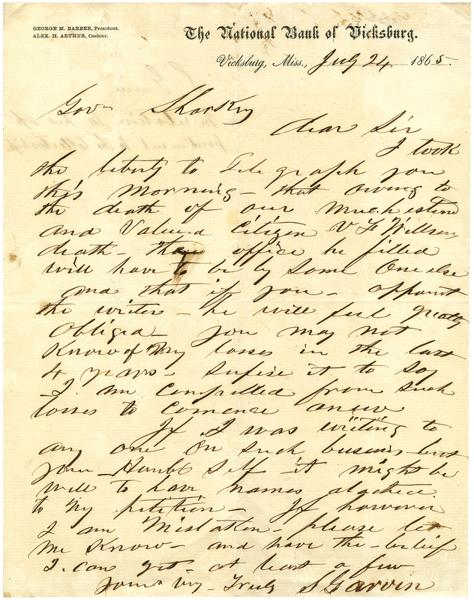 GEORGE M. BARBER, President.
ALEX. H. ARTHUR, Cashier.
The National Bank of Vicksburg.
Vicksburg, Miss., July 24, 1865.
Gov Sharkey
Dear Sir
I took
the liberty to Telegraph you
this morning - that owing to
the death of our much esteem
and Valued Citizen V F Willson
death - the office he filled
will have to be by some one else
and that if you - appoint
the writer - he will feel greatly
obliged - you may not
Know of My losses in the last
4 years - sufice it to say
I am compelled from such
losses to comence anew
If I was writing to
any one on such business but
your Humbl Self it might be
well to have names atached
to My petition - If however
I am Mistaken - please let
me Know - and have the - belief
I can get - at least a few
Yours very - Truly S Garvin